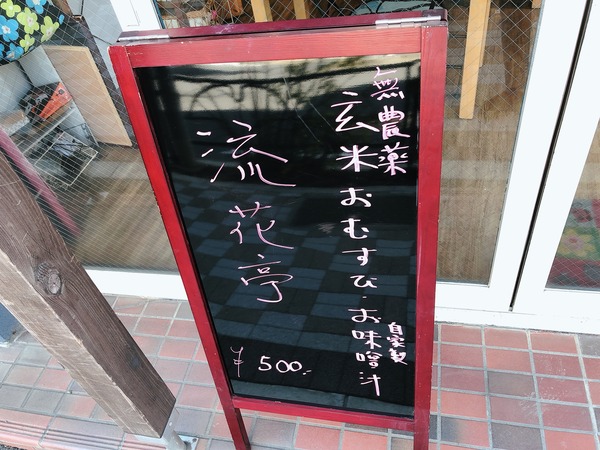 無農薬
玄米おむすび・お味噌汁
自家製
流花亭
¥500.-